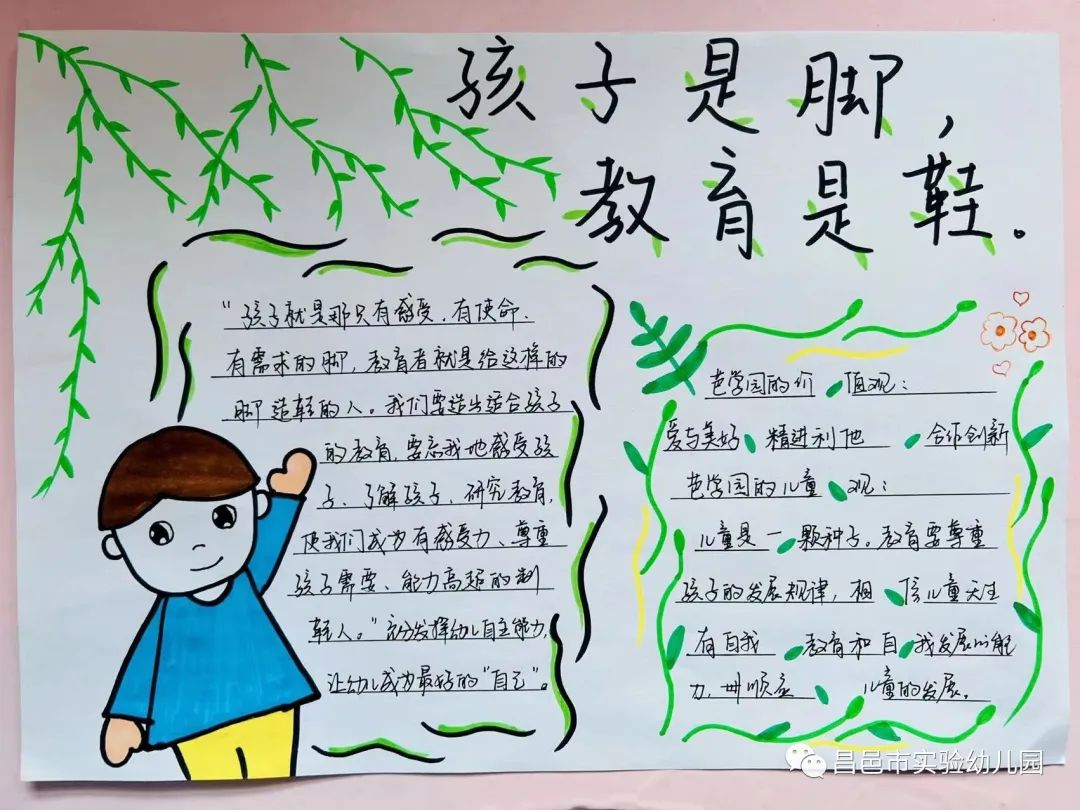 孩子是脚，
教育是鞋。
“孩子就是那只有感受、有使命、
有需求的脚，教育者就是给这样的
脚造鞋的人。我们要造出适合孩子
的教育，要忘我地感受孩
子、了解孩子、研究教育，
使我们成为有感受力、尊重
孩子需要、能力高超的制
鞋人。”充分发挥幼儿自主能力，
让幼儿成为最好的“自己”。
芭学园的价值观：
爱与美好 精进利他 合作创新
芭学园的儿童观：
儿童是一颗种子。教育要尊重
孩子的发展规律，相信儿童天生
有自我教育和自我发展的能
力，顺应儿童的发展。
昌邑市实验幼儿园